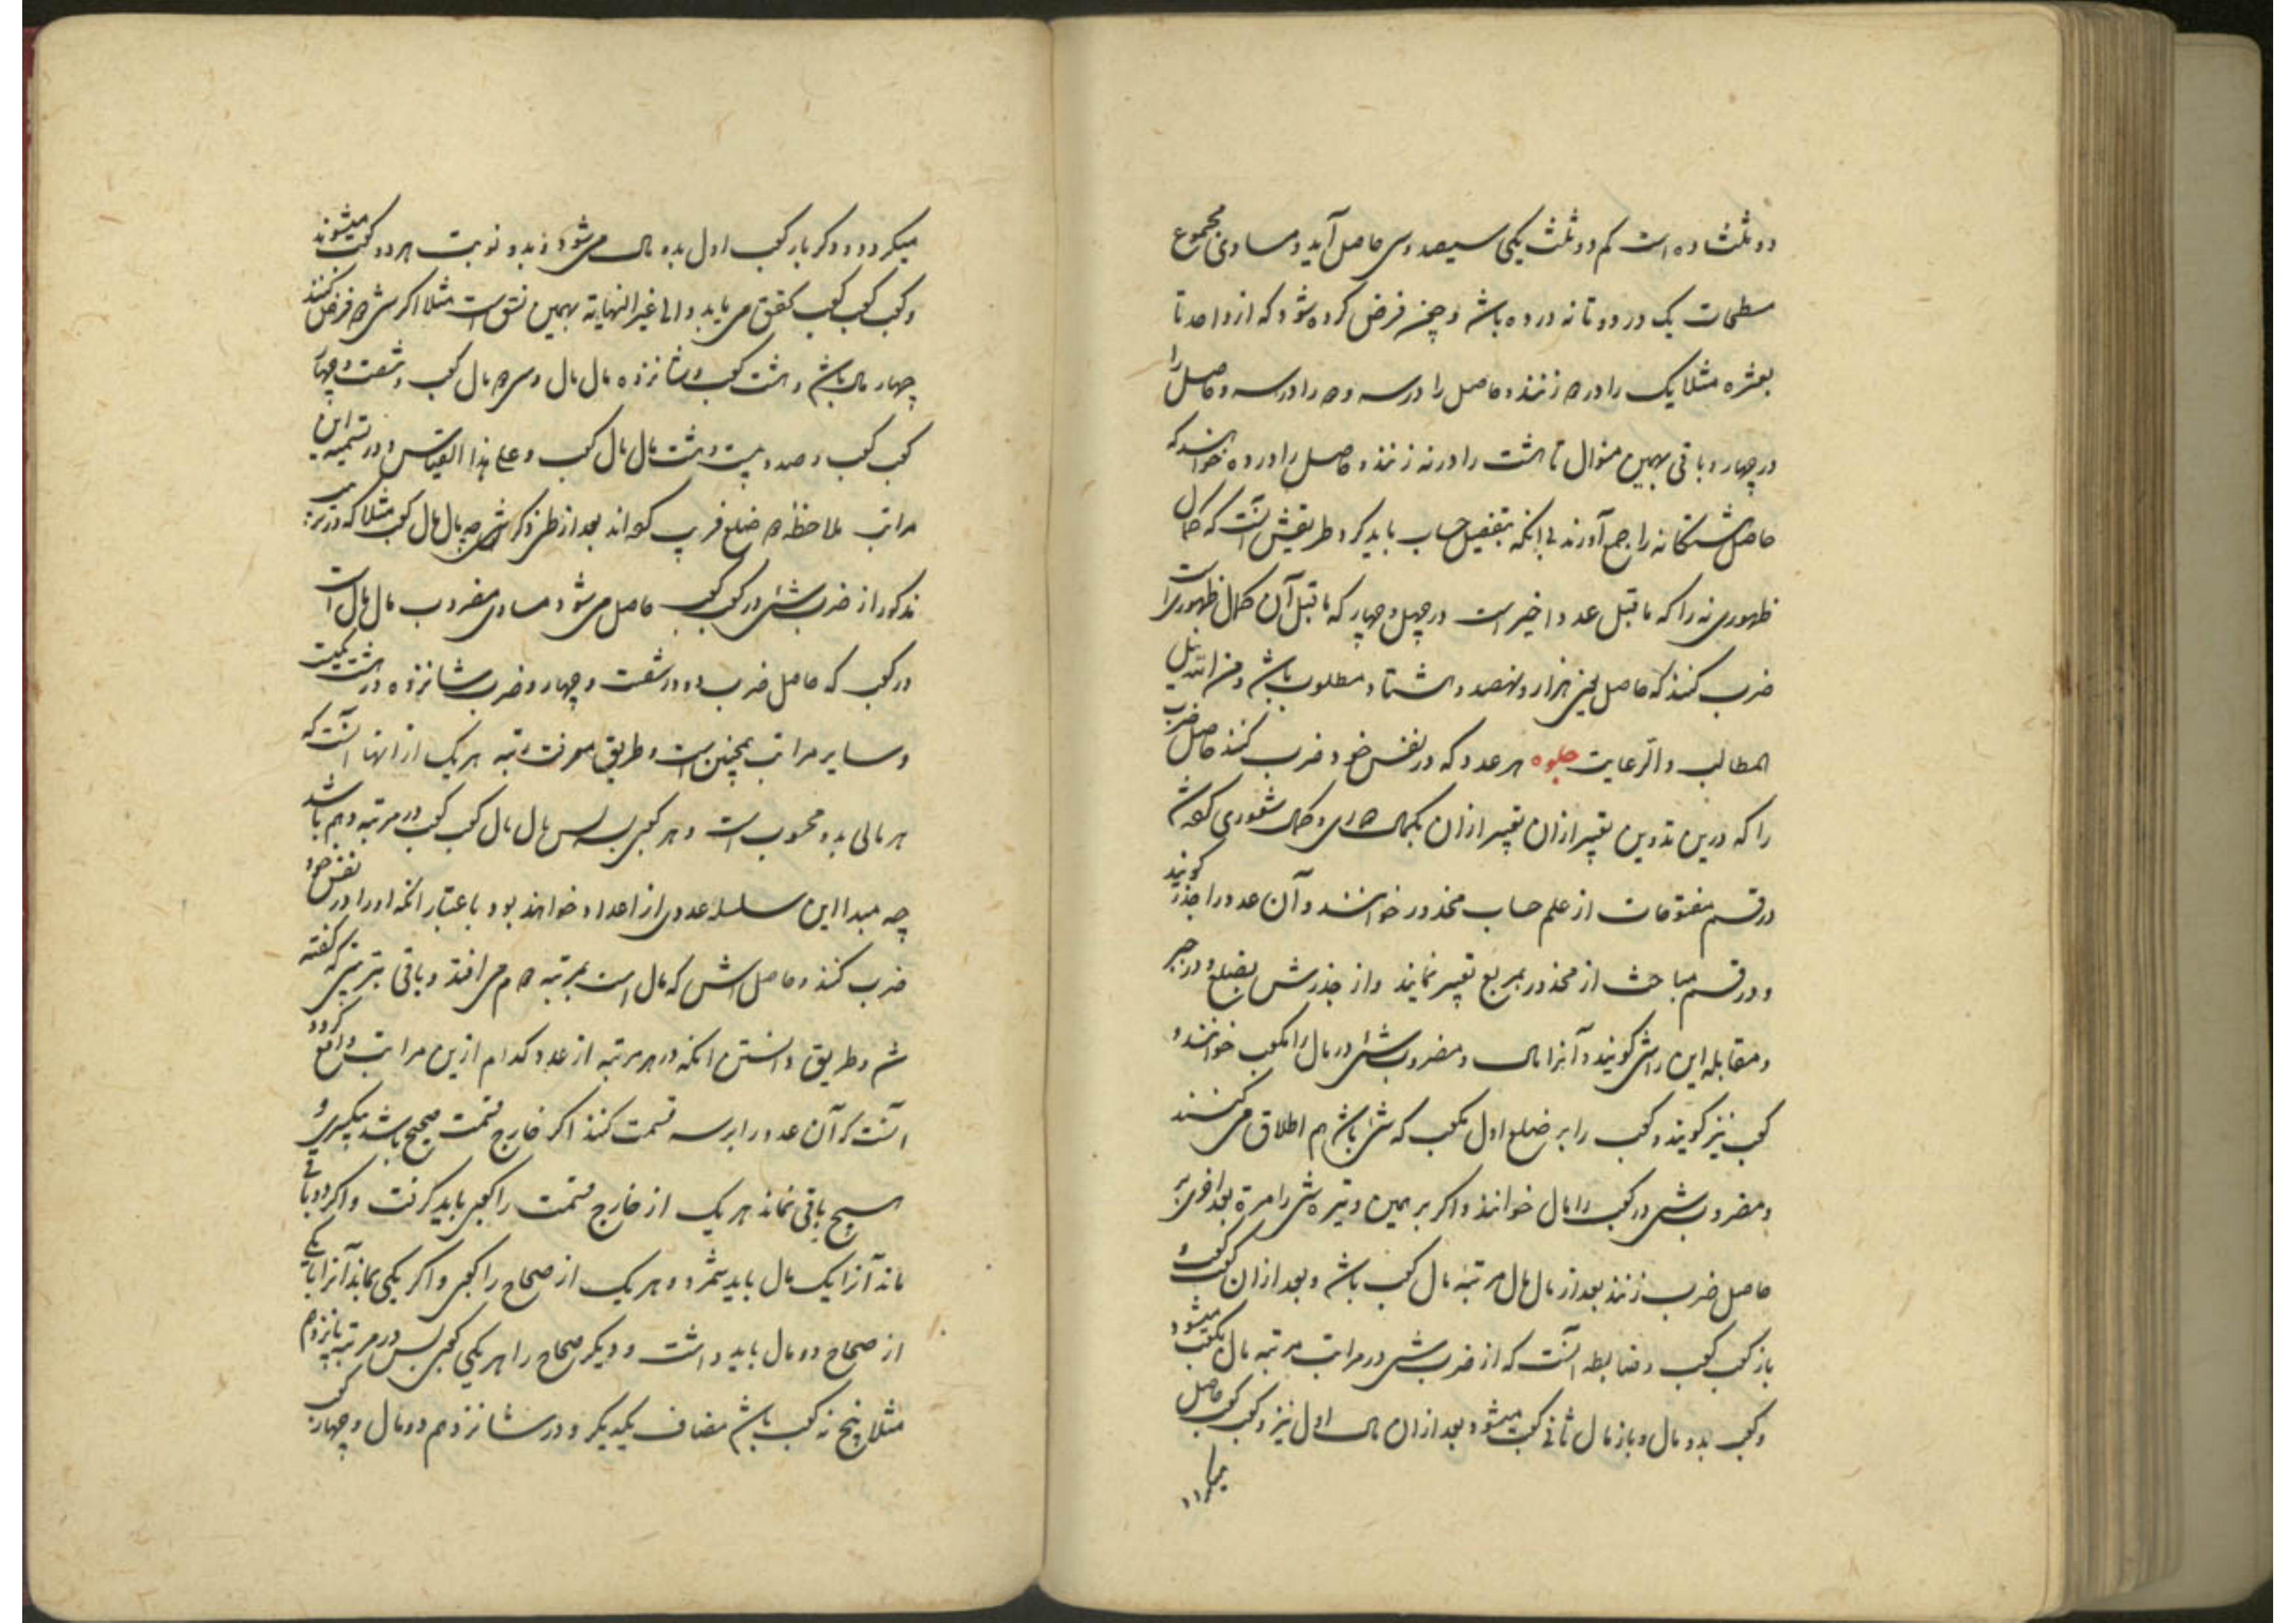 دو ثلث ده است کم دو ثلث یکی سیصد و سی حاصل آید و مساوی مجموع
مسطحات یک در دو تا نه در ده باشد و چنین فرض کرده شود که از واحد تا
بعشره مثلا یک را در ۲ زنند و حاصل را در سه و ۲ را در سه و حاصل را
در چهار و باقی بهمین منوال تا هشت را در نه زنند و حاصل را در ده خواهند که
حاصل هشتکانه را جمع آورند بی آنکه بتفصیل حساب باید کرد طریقش آنست که کمال
ظهوری نه را که ماقبل عدد اخیر است در چهل و چهار که ماقبل آن کمال ظهوری است
ضرب کنند که حاصل یعنی هزار و نهصد و هشتاد مطلوب باشد و من الله نیل
المطالب و الرعایت جلوه هر عدد که در نفس خود ضرب کنند حاصل ضرب
را که درین تدوین تعبیر ازان بکمال و کمال شعوری کرده شد
در قسم مفتوحات از علم حساب مجذور خوانند و آن عدد را جذر گویند
و در قسم مباحث از مجذور بمربع تعبیر نمایند و از جذرش بضلع و در جبر
و مقابله این را شی گویند و آنرا مال و مضروب شی در مال را مکعب خوانند و
کعب نیز گویند و کعب را بر ضلع اول مکعب که شی باشد هم اطلاق می کنند
و مضروب شی در کعب را مال مال خوانند و اگر بر همین وتیره شی را مرة بعد اخری بر
حاصل ضرب زنند بعد از مال مال مرتبه مال کعب باشد و بعد ازان کعب کعب و
باز کعب کعب و ضابطه آنست که از ضرب شی در مراتب مرتبه مال مکعب میشود
و کعب بدو مال و باز مال ثانی کعب میشود بعد ازان مال اول نیز و کعب کعب کعب حاصل
میکردد و دکر بار کعب اول بدو مال می شود و بدو نوبت هر دو کعب میشوند
و کعب کعب کعب کعب تحقق می یابد و الی غیر النهایة بهمین نسق است مثلا اکر شی ۲ فرض کنند
چهار مال باشد و هشت کعب و شانزده مال مال و سی ۲ مال کعب و شصت و چهار
کعب کعب و صد و بیست و هشت مال مال کعب و علی هذا القیاس و در تسمیه این
مراتب ملاحظه ۲ ضلع قریب کرده اند بعد از طرز ذکر مال مال کعب مثلا که در مرتبه
مذکور از ضرب شی در کعب کعب حاصل می شود مساوی مضروب مال مال است
در کعب که حاصل ضرب دو در شصت و چهار و ضرب شانزده در هشت یکیست
و سایر مراتب همچنین است و طریق معرفت رتبه هر یک از انها آنست که
هر مالی بدو محسوب است و هر کعبی بسه پس مال مال کعب کعب در مرتبه دهم باشد
چه مبدا این سلسله عددی از اعداد خواهد بود باعتبار انکه او را در نفس خود
ضرب کنند و حاصلش که مال است بمرتبه ۲ م می افتد و باقی بترتیبی که گفته
شد و طریق دانستن انکه در هر مرتبه از عدد کدام ازین مراتب واقع کردد
آنست که آن عدد را بر سه قسمت کنند اکر خارج قسمت صحیح باشد بیکسری و
هیچ باقی نماند هر یک از خارج قسمت را کعبی باید کرفت و اکر دو باقی
ماند آنرا یک مال باید شمرد و هر یک از صحاح را کعبی و اکر یکی بماند آنرا با یکی
از صحاح دو مال باید داشت و دیکر صحاح را هر یکی کعبی پس در مرتبه پانزدهم
مثلا پنج کعب باشد مضاف یکدیکر و در شانزدهم دو مال و چهار کعب